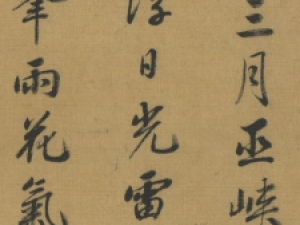 三月巫峡
浮日光雷
峯雨花氣